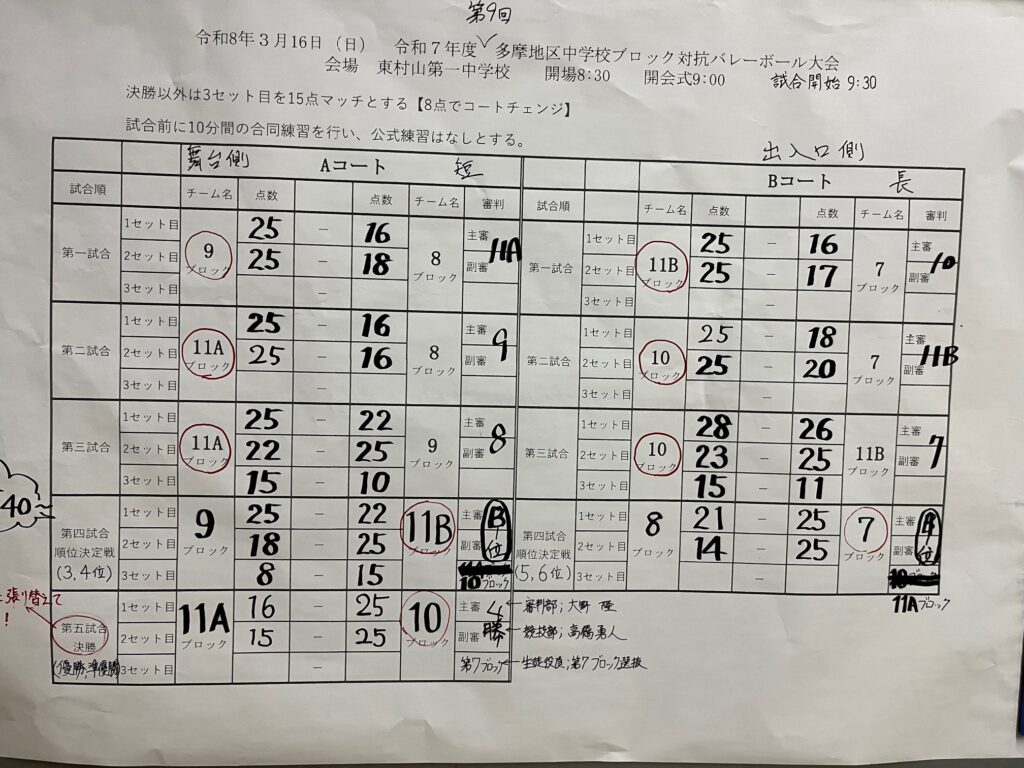 第9回
令和8年3月16日（日） 令和7年度 多摩地区中学校ブロック対抗バレーボール大会
会場 東村山第一中学校 開場8:30 開会式9:00 試合開始 9:30
決勝以外は3セット目を15点マッチとする【8点でコートチェンジ】
試合前に10分間の合同練習を行い、公式練習はなしとする。
舞台側 Aコート 短
試合順 チーム名 点数 点数 チーム名 審判
第一試合 9ブロック 8ブロック 主審 副審 11A
1セット目 25 － 16
2セット目 25 － 18
3セット目 －
第二試合 11Aブロック 8ブロック 主審 副審 9
1セット目 25 － 16
2セット目 25 － 16
3セット目 －
第三試合 11Aブロック 9ブロック 主審 副審 8
1セット目 25 － 22
2セット目 22 － 25
3セット目 15 － 10
40
第四試合 順位決定戦 (3,4位) 9ブロック 11Bブロック 主審 副審 位 10ブロック
1セット目 25 － 22
2セット目 18 － 25
3セット目 8 － 15
張り替えて
！
第五試合 決勝 (優勝,準優勝) 11Aブロック 10ブロック 主審 副審 勝 第7ブロック
1セット目 16 － 25
2セット目 15 － 25
3セット目 －
出入口側
Bコート 長
試合順 チーム名 点数 点数 チーム名 審判
第一試合 11Bブロック 7ブロック 主審 副審 10
1セット目 25 － 16
2セット目 25 － 17
3セット目 －
第二試合 10ブロック 7ブロック 主審 副審 11B
1セット目 25 － 18
2セット目 25 － 20
3セット目 －
第三試合 10ブロック 11Bブロック 主審 副審 7
1セット目 28 － 26
2セット目 23 － 25
3セット目 15 － 11
第四試合 順位決定戦 (5,6位) 8ブロック 7ブロック 主審 副審 位 11Aブロック
1セット目 21 － 25
2セット目 14 － 25
3セット目 －
審判部;大野
競技部;高橋勇人
生徒役員;第7ブロック選抜